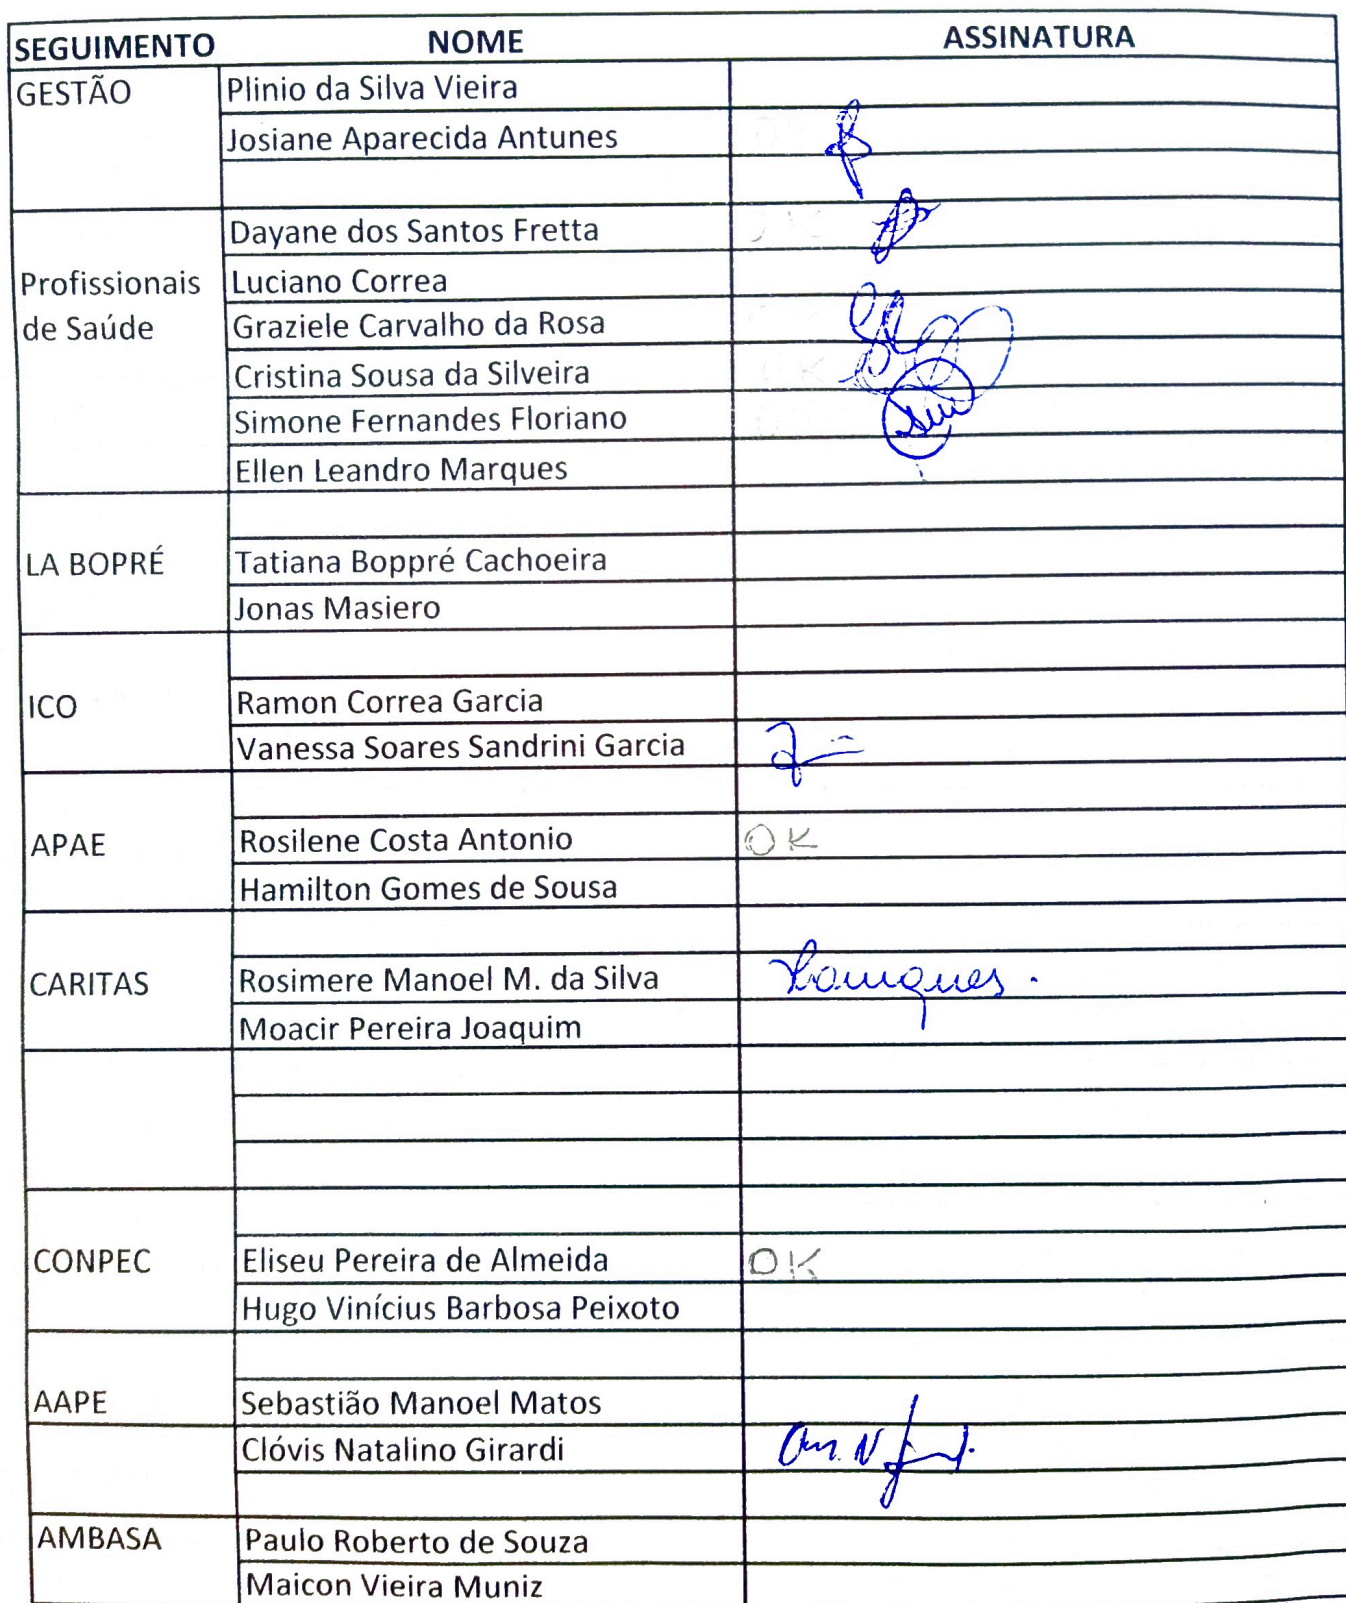 SEGUIMENTO NOME ASSINATURA
GESTÃO Plinio da Silva Vieira
Josiane Aparecida Antunes
Dayane dos Santos Fretta
Profissionais Luciano Correa
de Saúde Graziele Carvalho da Rosa
Cristina Sousa da Silveira
Simone Fernandes Floriano
Ellen Leandro Marques
LA BOPRÉ Tatiana Boppré Cachoeira
Jonas Masiero
ICO Ramon Correa Garcia
Vanessa Soares Sandrini Garcia
APAE Rosilene Costa Antonio OK
Hamilton Gomes de Sousa
CARITAS Rosimere Manoel M. da Silva
Moacir Pereira Joaquim
CONPEC Eliseu Pereira de Almeida OK
Hugo Vinícius Barbosa Peixoto
AAPE Sebastião Manoel Matos
Clóvis Natalino Girardi
AMBASA Paulo Roberto de Souza
Maicon Vieira Muniz